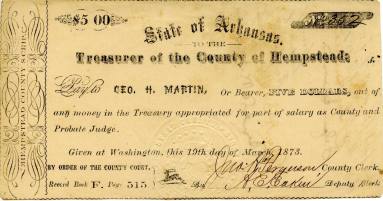 $5 00
No. 352
State of Arkansas.
TO THE
Treasurer of the County of Hempstead:
Pay to GEO. H. MARTIN, Or Bearer, FIVE DOLLARS, out of
any money in the Treasury appropriated for part of salary as County and
Probate Judge.
Given at Washington, this 19th day of March, 1873.
County Clerk.
BY ORDER OF THE COUNTY COURT.
Record Book F. Page 515.
By Deputy Clerk
HEMPSTEAD COUNTY SCRIP.